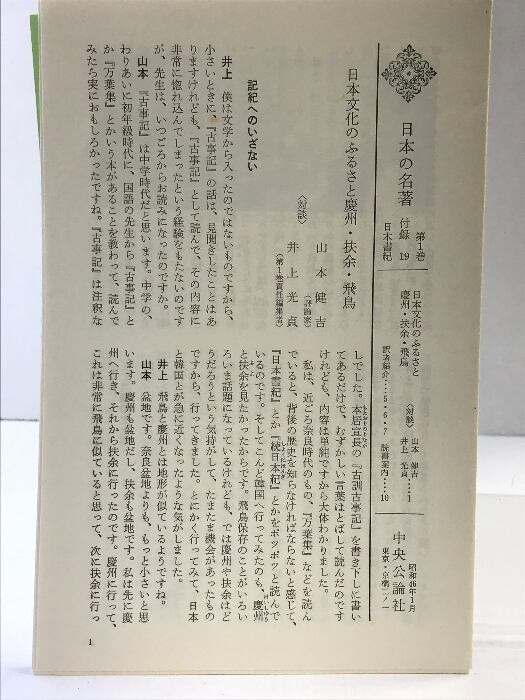 日本の名著
第1巻
付録 19
日本書紀
日本文化のふるさと
慶州・扶余・飛鳥
〈対談〉
山本 健吉
井上 光貞……1
訳者紹介……5・6・7
読書案内……10
昭和46年1月
中央公論社
東京・京橋二ノ一
日本文化のふるさと慶州・扶余・飛鳥
〈対談〉
山本健吉
〈評論家〉
井上光貞
〈第1巻責任編集者〉
記紀へのいざない
井上 僕は文学から入ったのではないものですから、
小さいときに、『古事記』の話は、見聞きしたことはあ
りますけれども、『古事記』として読んで、その内容に
非常に惚れ込んでしまったという経験をもたないのです
が、先生は、いつごろからお読みになったのですか。
山本 『古事記』は中学時代だと思います。中学の、
わりあいに初年級時代に、国語の先生から『古事記』と
か『万葉集』とかいう本があることを教わって、読んで
みたら実におもしろかったですね。『古事記』は注釈な
しでした。本居宣長の『古訓古事記』を書き下しに書い
てあるだけで、むずかしい言葉はとばして読んだのです
けれども、内容は単純ですから大体わかりました。
私は、近ごろ奈良時代のもの、『万葉集』などを読ん
でいると、背後の歴史を知らなければならないと感じて、
『日本書紀』とか『続日本紀』とかをポツポツと読んで
いるのです。そしてこんど韓国へ行ってみたのも、慶州
と扶余を見たかったからです。飛鳥保存のことがいろい
ろいま話題になっているけれども、では慶州や扶余はど
うだろうという気持がして、たまたま機会があったもの
ですから、行ってきました。とにかく行ってみて、日本
と韓国とが急に近くなったような気がしました。
井上 飛鳥と慶州とは地形が似ているようですね。
山本 盆地です。奈良盆地よりも、もっと小さいと思
います。慶州も盆地だし、扶余も盆地です。私は先に慶
州へ行き、それから扶余に行ったのです。慶州に行って、
これは非常に飛鳥に似ていると思って、次に扶余に行っ
1